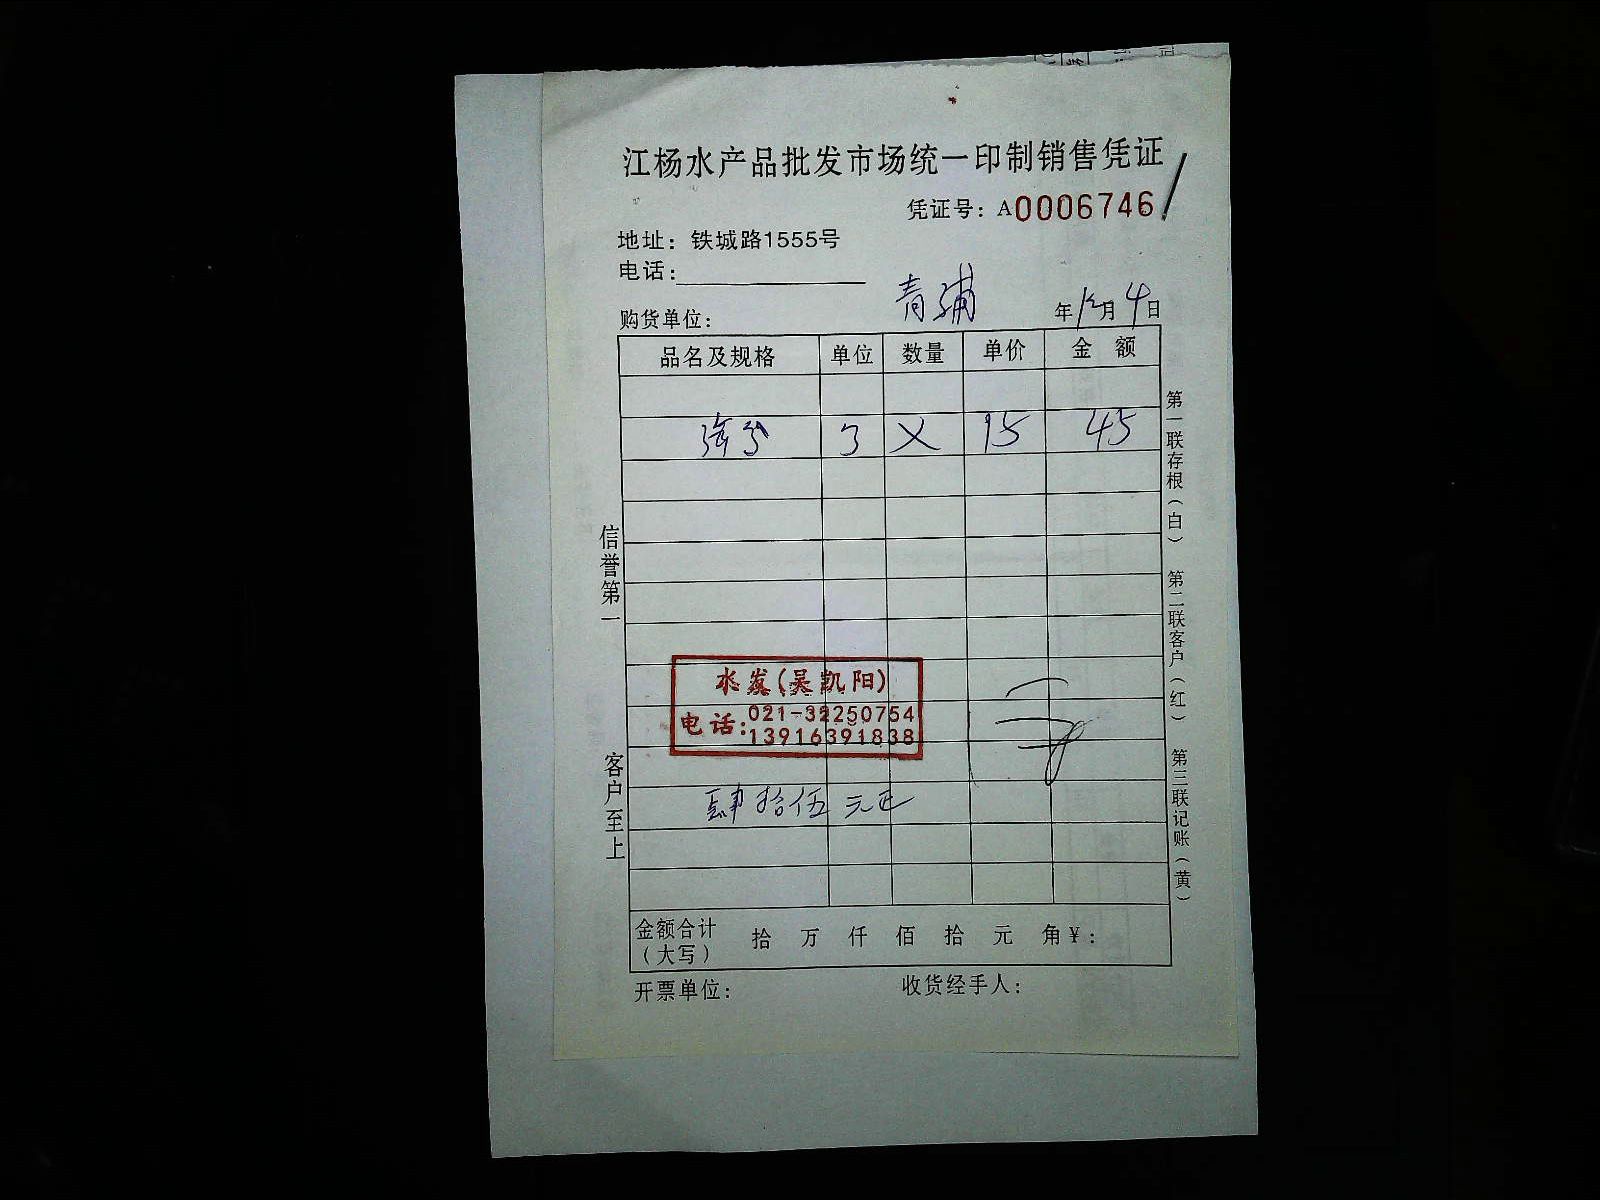 江杨水产品批发市场统一印制销售凭证
凭证号：A0006746
地址：铁城路1555号
电话：
购货单位： 青浦 年12月4日
品名及规格 单位 数量 单价 金额
3 × 15 45
水发(吴凯阳)
电话：021-32250754
13916391838
肆拾伍元正
金额合计（大写） 拾 万 仟 佰 拾 元 角¥：
开票单位： 收货经手人：
信誉第一 客户至上
第一联存根（白） 第二联客户（红） 第三联记账（黄）